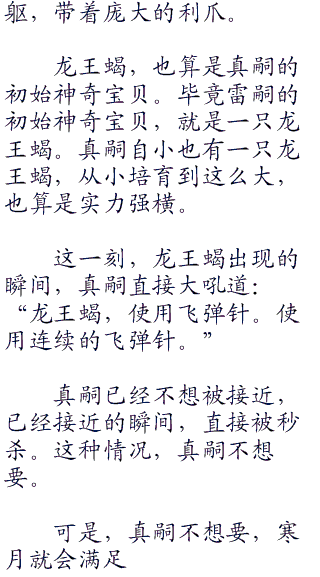 躯，带着庞大的利爪。
龙王蝎，也算是真嗣的
初始神奇宝贝。毕竟雷嗣的
初始神奇宝贝，就是一只龙
王蝎。真嗣自小也有一只龙
王蝎，从小培育到这么大，
也算是实力强横。
这一刻，龙王蝎出现的
瞬间，真嗣直接大吼道：
“龙王蝎，使用飞弹针。使
用连续的飞弹针。”
真嗣已经不想被接近，
已经接近的瞬间，直接被秒
杀。这种情况，真嗣不想
要。
可是，真嗣不想要，寒
月就会满足